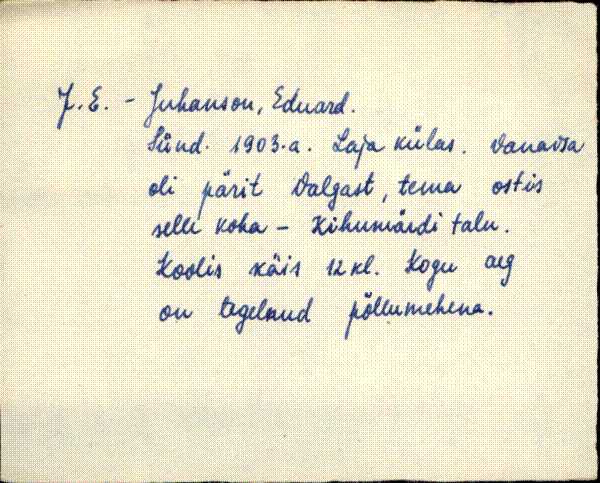 J.E. - Juhanson, Eduard.
Sünd. 1903.a. Laja külas. Vanaisa
oli pärit Valgast, tema ostis
selle koha - Kihumärdi talu.
Koolis käis 12 kl. Kogu aeg
on tegelnud põllumehena.